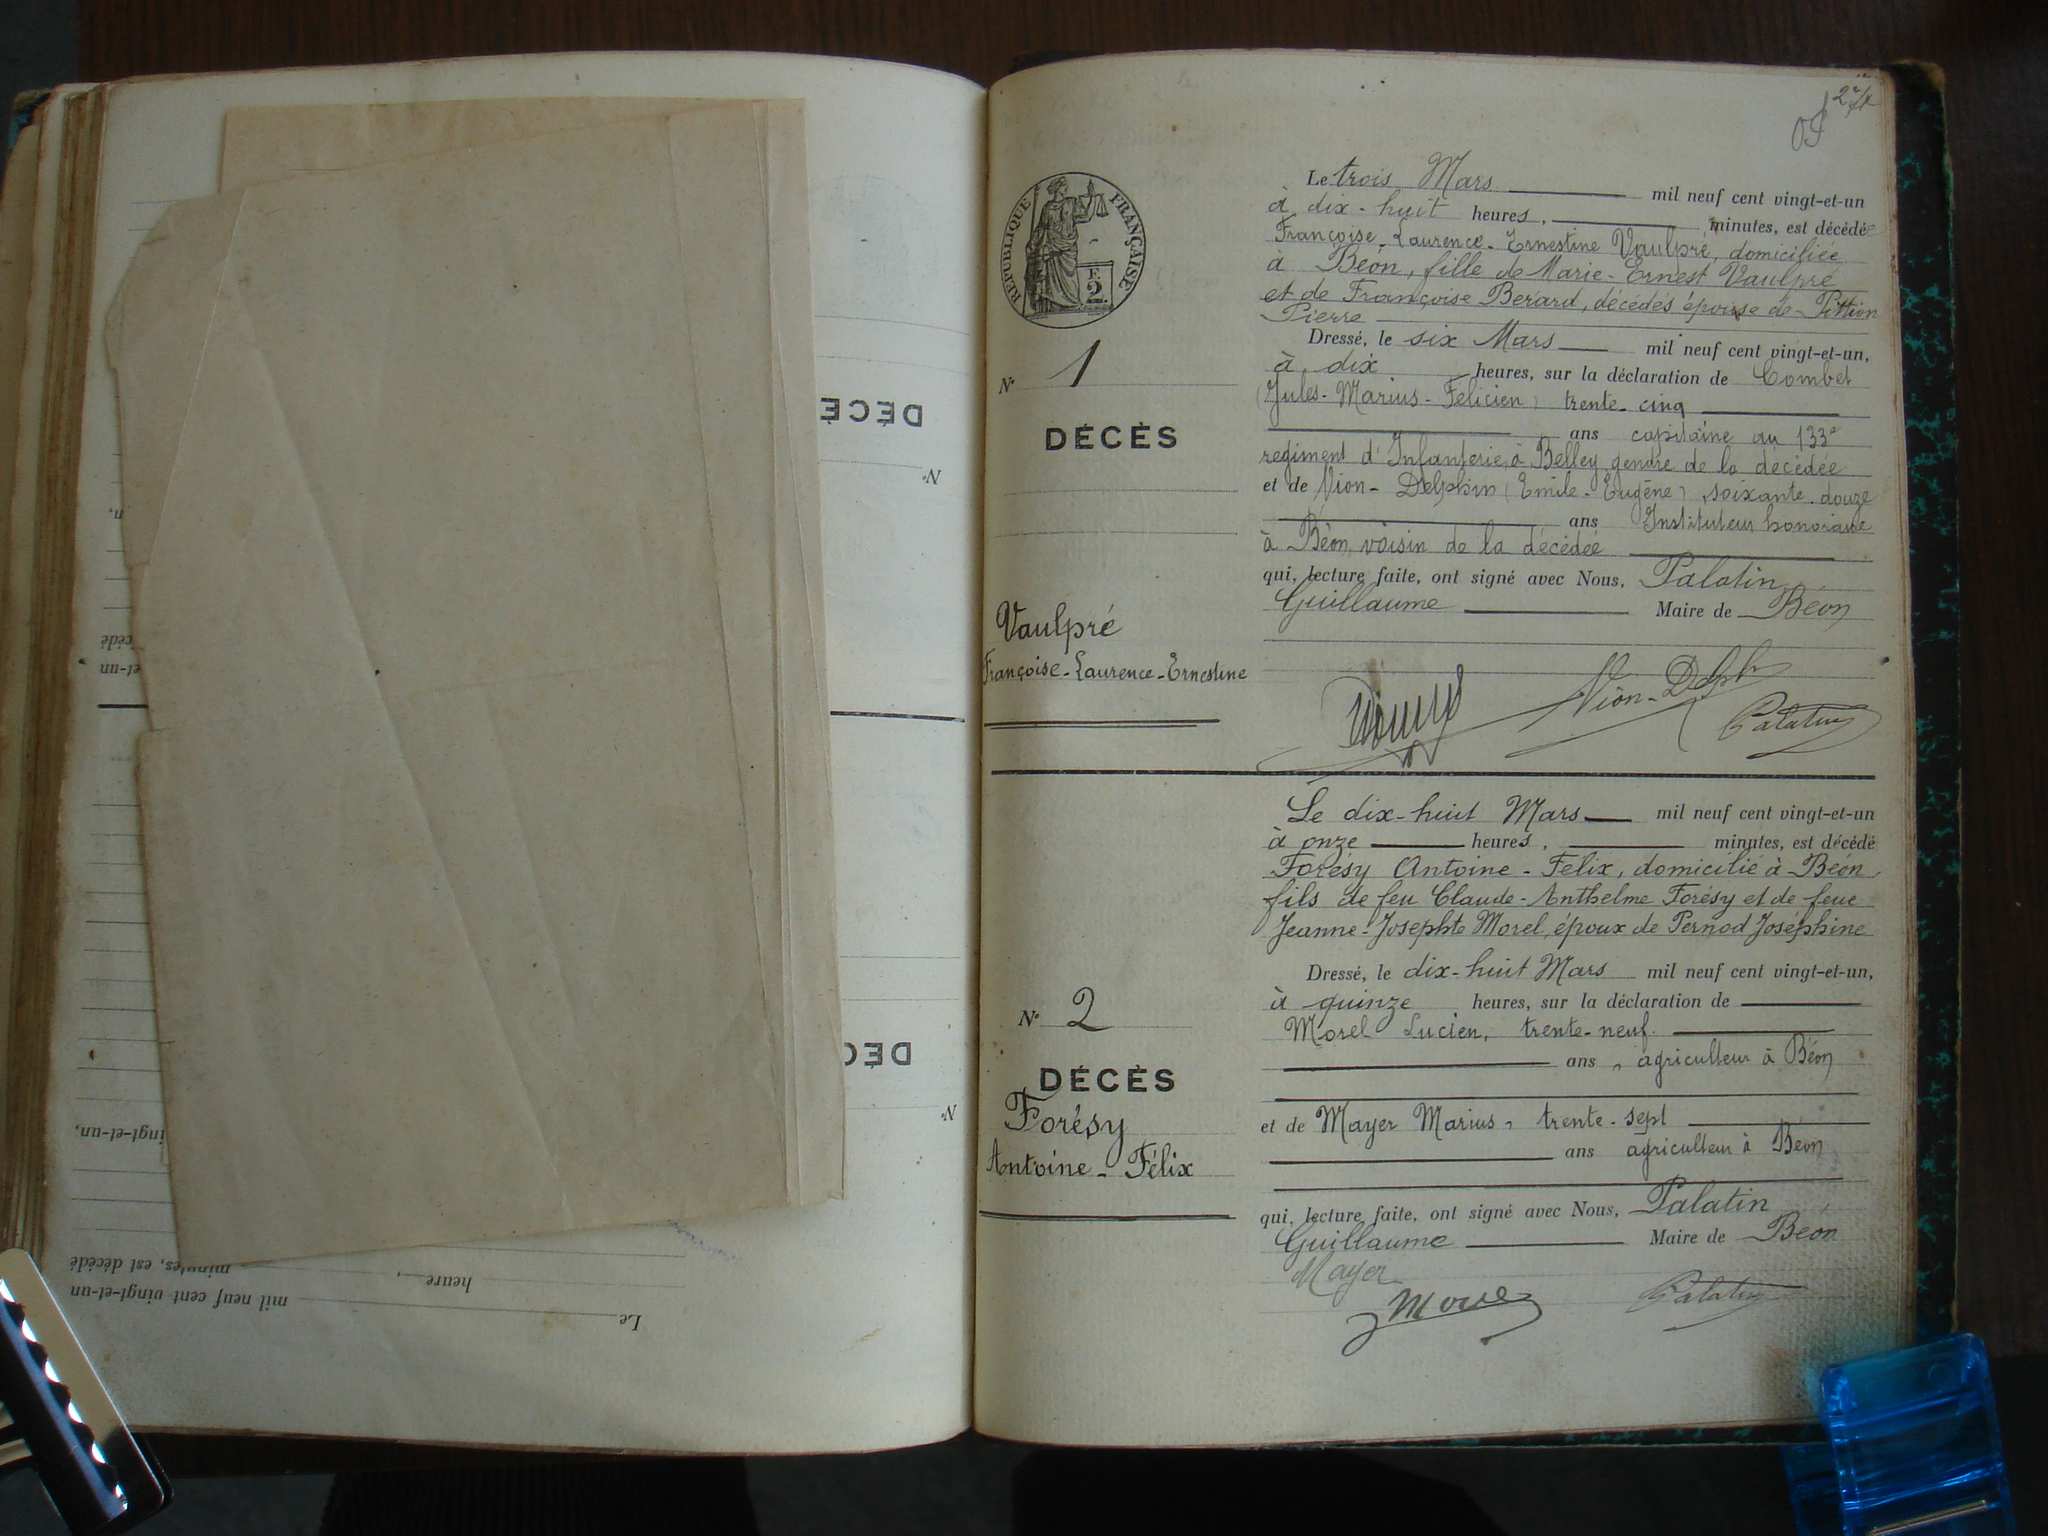 Le trois Mars mil neuf cent vingt-et-un
à dix-huit heures, minutes, est décédée
Françoise-Laurence-Ernestine Vaulpré, domiciliée
à Béon, fille de Marie-Ernest Vaulpré
et de Françoise Berard, décédés épouse de Pittion
Pierre
RÉPUBLIQUE FRANÇAISE
F.
2
Dressé, le six Mars mil neuf cent vingt-et-un,
à dix heures, sur la déclaration de Combet
(Jules-Marius-Félicien) trente-cinq
ans capitaine au 133e
regiment d'Infanterie, à Belley gendre de la décédée
et de Vion-Delphin (Emile-Eugène) soixante-douze
ans Instituteur honoraire
à Béon, voisin de la décédée
qui, lecture faite, ont signé avec Nous, Palatin
Guillaume Maire de Béon
N° 1
DÉCÈS
Vaulpré
Françoise-Laurence-Ernestine
Vion-Delph
Palatin
Le dix-huit Mars mil neuf cent vingt-et-un
à onze heures, minutes, est décédé
Forésy Antoine-Felix, domicilié à Béon,
fils de feu Claude-Anthelme Forésy et de feue
Jeanne-Josephte Morel, époux de Pernod Joséphine
Dressé, le dix-huit Mars mil neuf cent vingt-et-un,
à quinze heures, sur la déclaration de
Morel Lucien, trente-neuf
ans, agriculteur à Béon
et de Mayer Marius, trente-sept
ans agriculteur à Béon
qui, lecture faite, ont signé avec Nous, Palatin
Guillaume Maire de Béon
Mayer
Morel
Palatin
N° 2
DÉCÈS
Forésy
Antoine-Félix
DÉCÈ
N°
et-un
DÉC
N°
ingt-et-un,
Le
mil neuf cent vingt-et-un
heure
minutes, est décédé